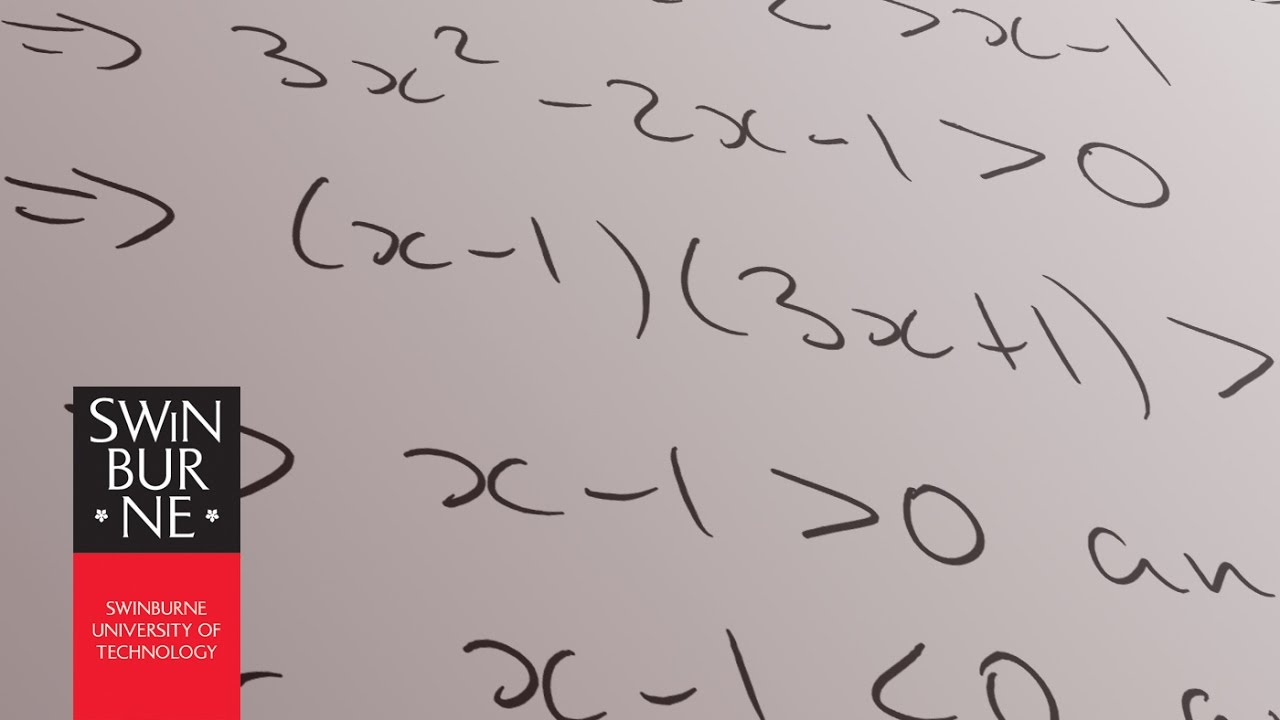 > x-1
⇒ 3x² - 2x - 1 > 0
⇒ (x-1)(3x+1) >
x-1 > 0 an
x-1 < 0
SWiN
BUR
NE
SWINBURNE
UNIVERSITY OF
TECHNOLOGY